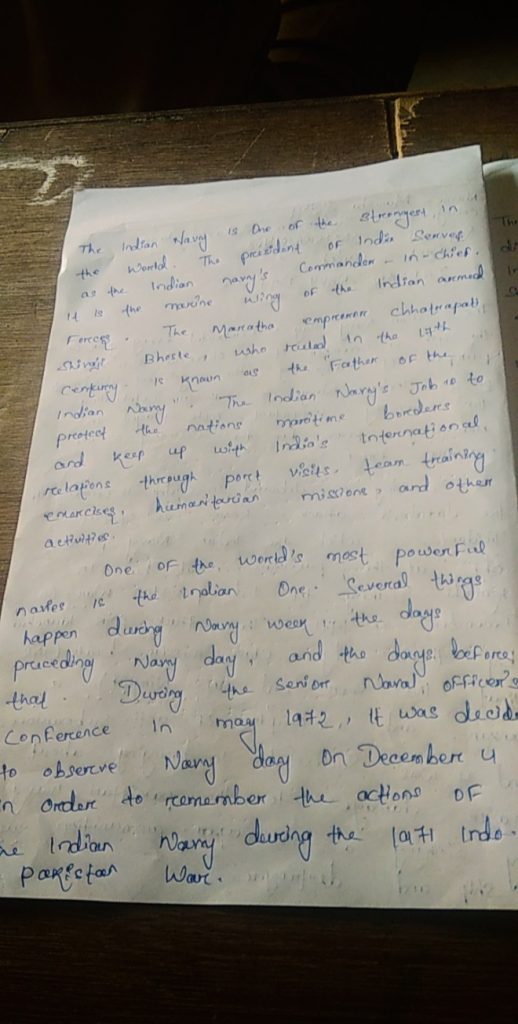 The Indian Navy is One of the Strongest in
the World. The president of India Serves
as the Indian navy's Commander - in - chief.
It is the marine wing of the Indian armed
Forces. The Maratha emperor chhatrapati
Shivaji Bhosle, who ruled in the 17th
Century. is Known as the "Father of the
Indian Navy". The Indian Navy's Job is to
protect the nations maritime borders
and keep up with India's International
relations through port visits, team training
exercises, humanitarian missions, and other
activities.
One of the, world's most powerful
navies is the Indian One. Several things
happen during Navy week the days
preceding Navy day, and the days before
that. During the senior Naval officer's
Conference in may 1972, It was decide
to observe Navy day on December 4
n order to remember the actions of
he Indian Navy during the 1971 Indo-
pakistan War.